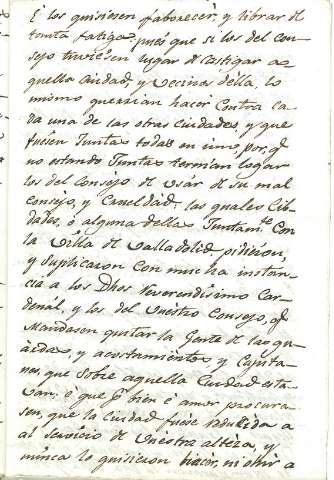 è los quisiesen faborecer, y librar de
tanta fatiga, pues que si los del con-
sejo tuviesen lugar de castigar a
quella ciudad, y vecinos della, lo
mismo querrian hacer contra ca
da una de las otras ciudades, y que
fuesen juntas todas en uno, por q.e
no estando juntas ternian logar
los del Consejo de usár de su mal
consejo, y crueldad, las quales Cib-
dades, o alguna dellas juntam.te con
la villa de Valladolid pidieron,
y suplicaron con mucha instan-
cia a los Dhos Reverendisimo Car-
denál, y los del Vuestro Consejo, q.e
mandasen quitar la Gente de las gu-
ardas, y acostamientos y Capita-
nes, que sobre aquella Ciudad esta
van, è que p.r bien è amor procura-
sen, que la ciudad fuese reducida a
al servicio de Vuestra alteza, y
nunca lo quisieron hacer, ni ohir a